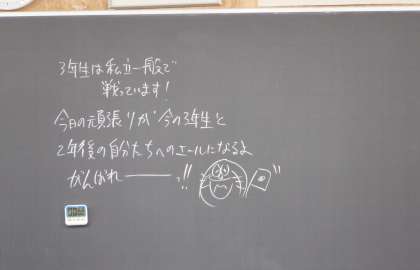 3年生は私立一般で
戦っています!
今日の頑張りが今の3年生と
2年後の自分たちへのエールになるよ
がんばれーーーっ!!